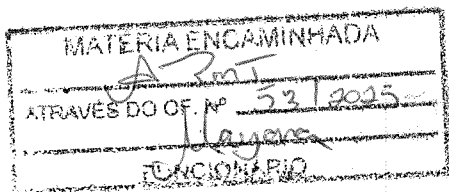 MATERIA ENCAMINHADA
ATRAVÉS DO OF. Nº 53 / 2025
Mayara
FUNCIONARIO